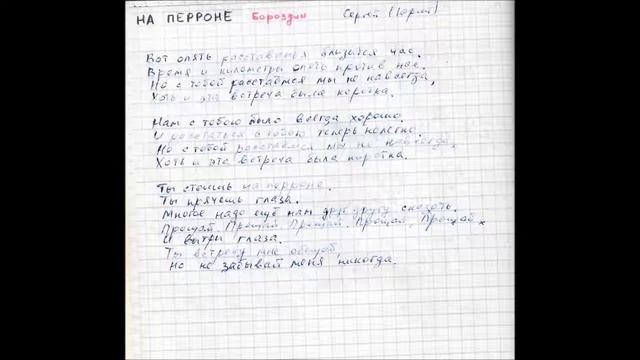 НА ПЕРРОНЕ Бороздин Сергей
Вот опять расставанья близится час.
Время и километры опять против нас.
Но с тобой расстаёмся мы не навсегда,
Хоть и эта встреча была коротка.
Нам с тобою было всегда хорошо.
И расстаться с тобою теперь нелегко.
Но с тобой расстаёмся мы не навсегда,
Хоть и эта встреча была коротка.
Ты стоишь на перроне.
Ты прячешь глаза.
Многое надо ещё нам друг другу сказать.
Прощай, Прощай, Прощай, Прощай, Прощай,
И вытри глаза.
Ты встречу мне обещай,
Но не забывай меня никогда.